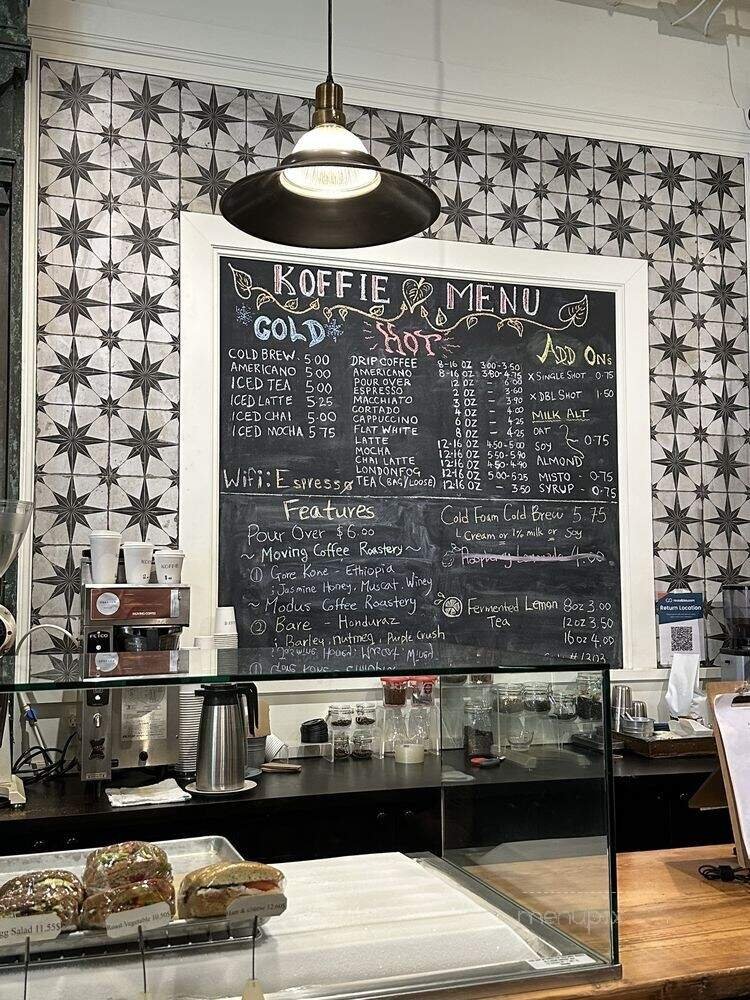 KOFFIE MENU
COLD
COLD BREW. 5.00
AMERICANO 5.00
ICED TEA 5.00
ICED LATTE 5.25
ICED CHAI 5.00
ICED MOCHA 5.75
Wifi: Espresso
HOT
DRIP COFFEE 8-16 OZ 3.00-3.50
AMERICANO 8-16 OZ 3.80-4.75
POUR OVER 12 OZ - 6.00
ESPRESSO 2 OZ - 3.60
MACCHIATO 3 OZ - 3.90
CORTADO 4 OZ - 4.00
CAPPUCCINO 6 OZ - 4.25
FLAT WHITE 8 OZ - 4.25
LATTE 12-16 OZ 4.50-5.00
MOCHA 12-16 OZ 5.50-5.90
CHAI LATTE 12-16 OZ 4.50-4.90
LONDONFOG 12-16 OZ 5.00-5.25
TEA (BAG/LOOSE) 12-16 OZ - 3.50
ADD ONs
X SINGLE SHOT 0.75
X DBL SHOT 1.50
MILK ALT
OAT
SOY 0.75
ALMOND
MISTO - 0.75
SYRUP - 0.75
Features
Pour Over $6.00
~ Moving Coffee Roastery ~
① Gore Kone - Ethiopia
; Jasmine, Honey, Muscat, Winey
~ Modus Coffee Roastery
② Bare - Honduraz
; Barley, nutmeg, Purple Crush
Cold Foam Cold Brew 5.75
L Cream or 1% milk or Soy
Fermented Lemon Tea
8oz 3.00
12oz 3.50
16oz 4.00
KOFFIE
FETCO
GO
Return Location
gg Salad 11.55$
Roast Vegetable 10.50$
menupix